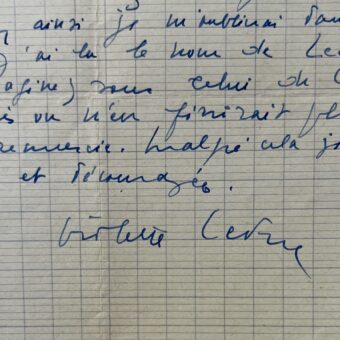 ainsi je m'oublierai dan
j'ai lu le nom de Led
agine) sous celui de l
on n'en finirait pl
remercie. Malgré cela je
et découragée.
Violette Leduc